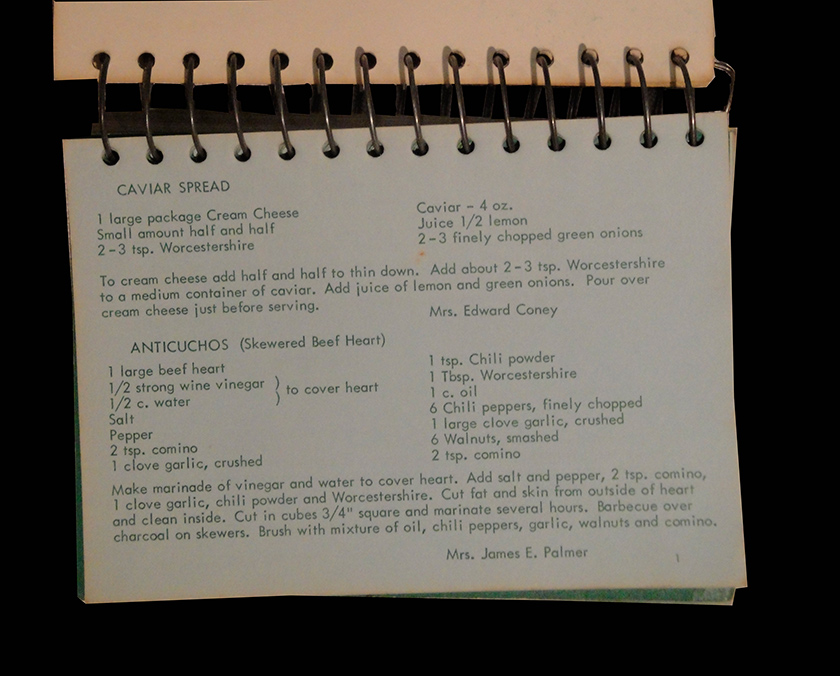 CAVIAR SPREAD
1 large package Cream Cheese
Small amount half and half
2-3 tsp. Worcestershire
Caviar - 4 oz.
Juice 1/2 lemon
2-3 finely chopped green onions
To cream cheese add half and half to thin down. Add about 2-3 tsp. Worcestershire
to a medium container of caviar. Add juice of lemon and green onions. Pour over
cream cheese just before serving.
Mrs. Edward Coney
ANTICUCHOS (Skewered Beef Heart)
1 large beef heart
1/2 strong wine vinegar
1/2 c. water
) to cover heart
Salt
Pepper
2 tsp. comino
1 clove garlic, crushed
1 tsp. Chili powder
1 Tbsp. Worcestershire
1 c. oil
6 Chili peppers, finely chopped
1 large clove garlic, crushed
6 Walnuts, smashed
2 tsp. comino
Make marinade of vinegar and water to cover heart. Add salt and pepper, 2 tsp. comino,
1 clove garlic, chili powder and Worcestershire. Cut fat and skin from outside of heart
and clean inside. Cut in cubes 3/4" square and marinate several hours. Barbecue over
charcoal on skewers. Brush with mixture of oil, chili peppers, garlic, walnuts and comino.
Mrs. James E. Palmer
1